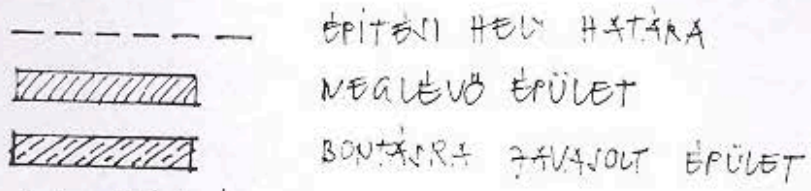 ÉPÍTÉSI HELY HATÁRA
MEGLÉVŐ ÉPÜLET
BONTÁSRA JAVASOLT ÉPÜLET